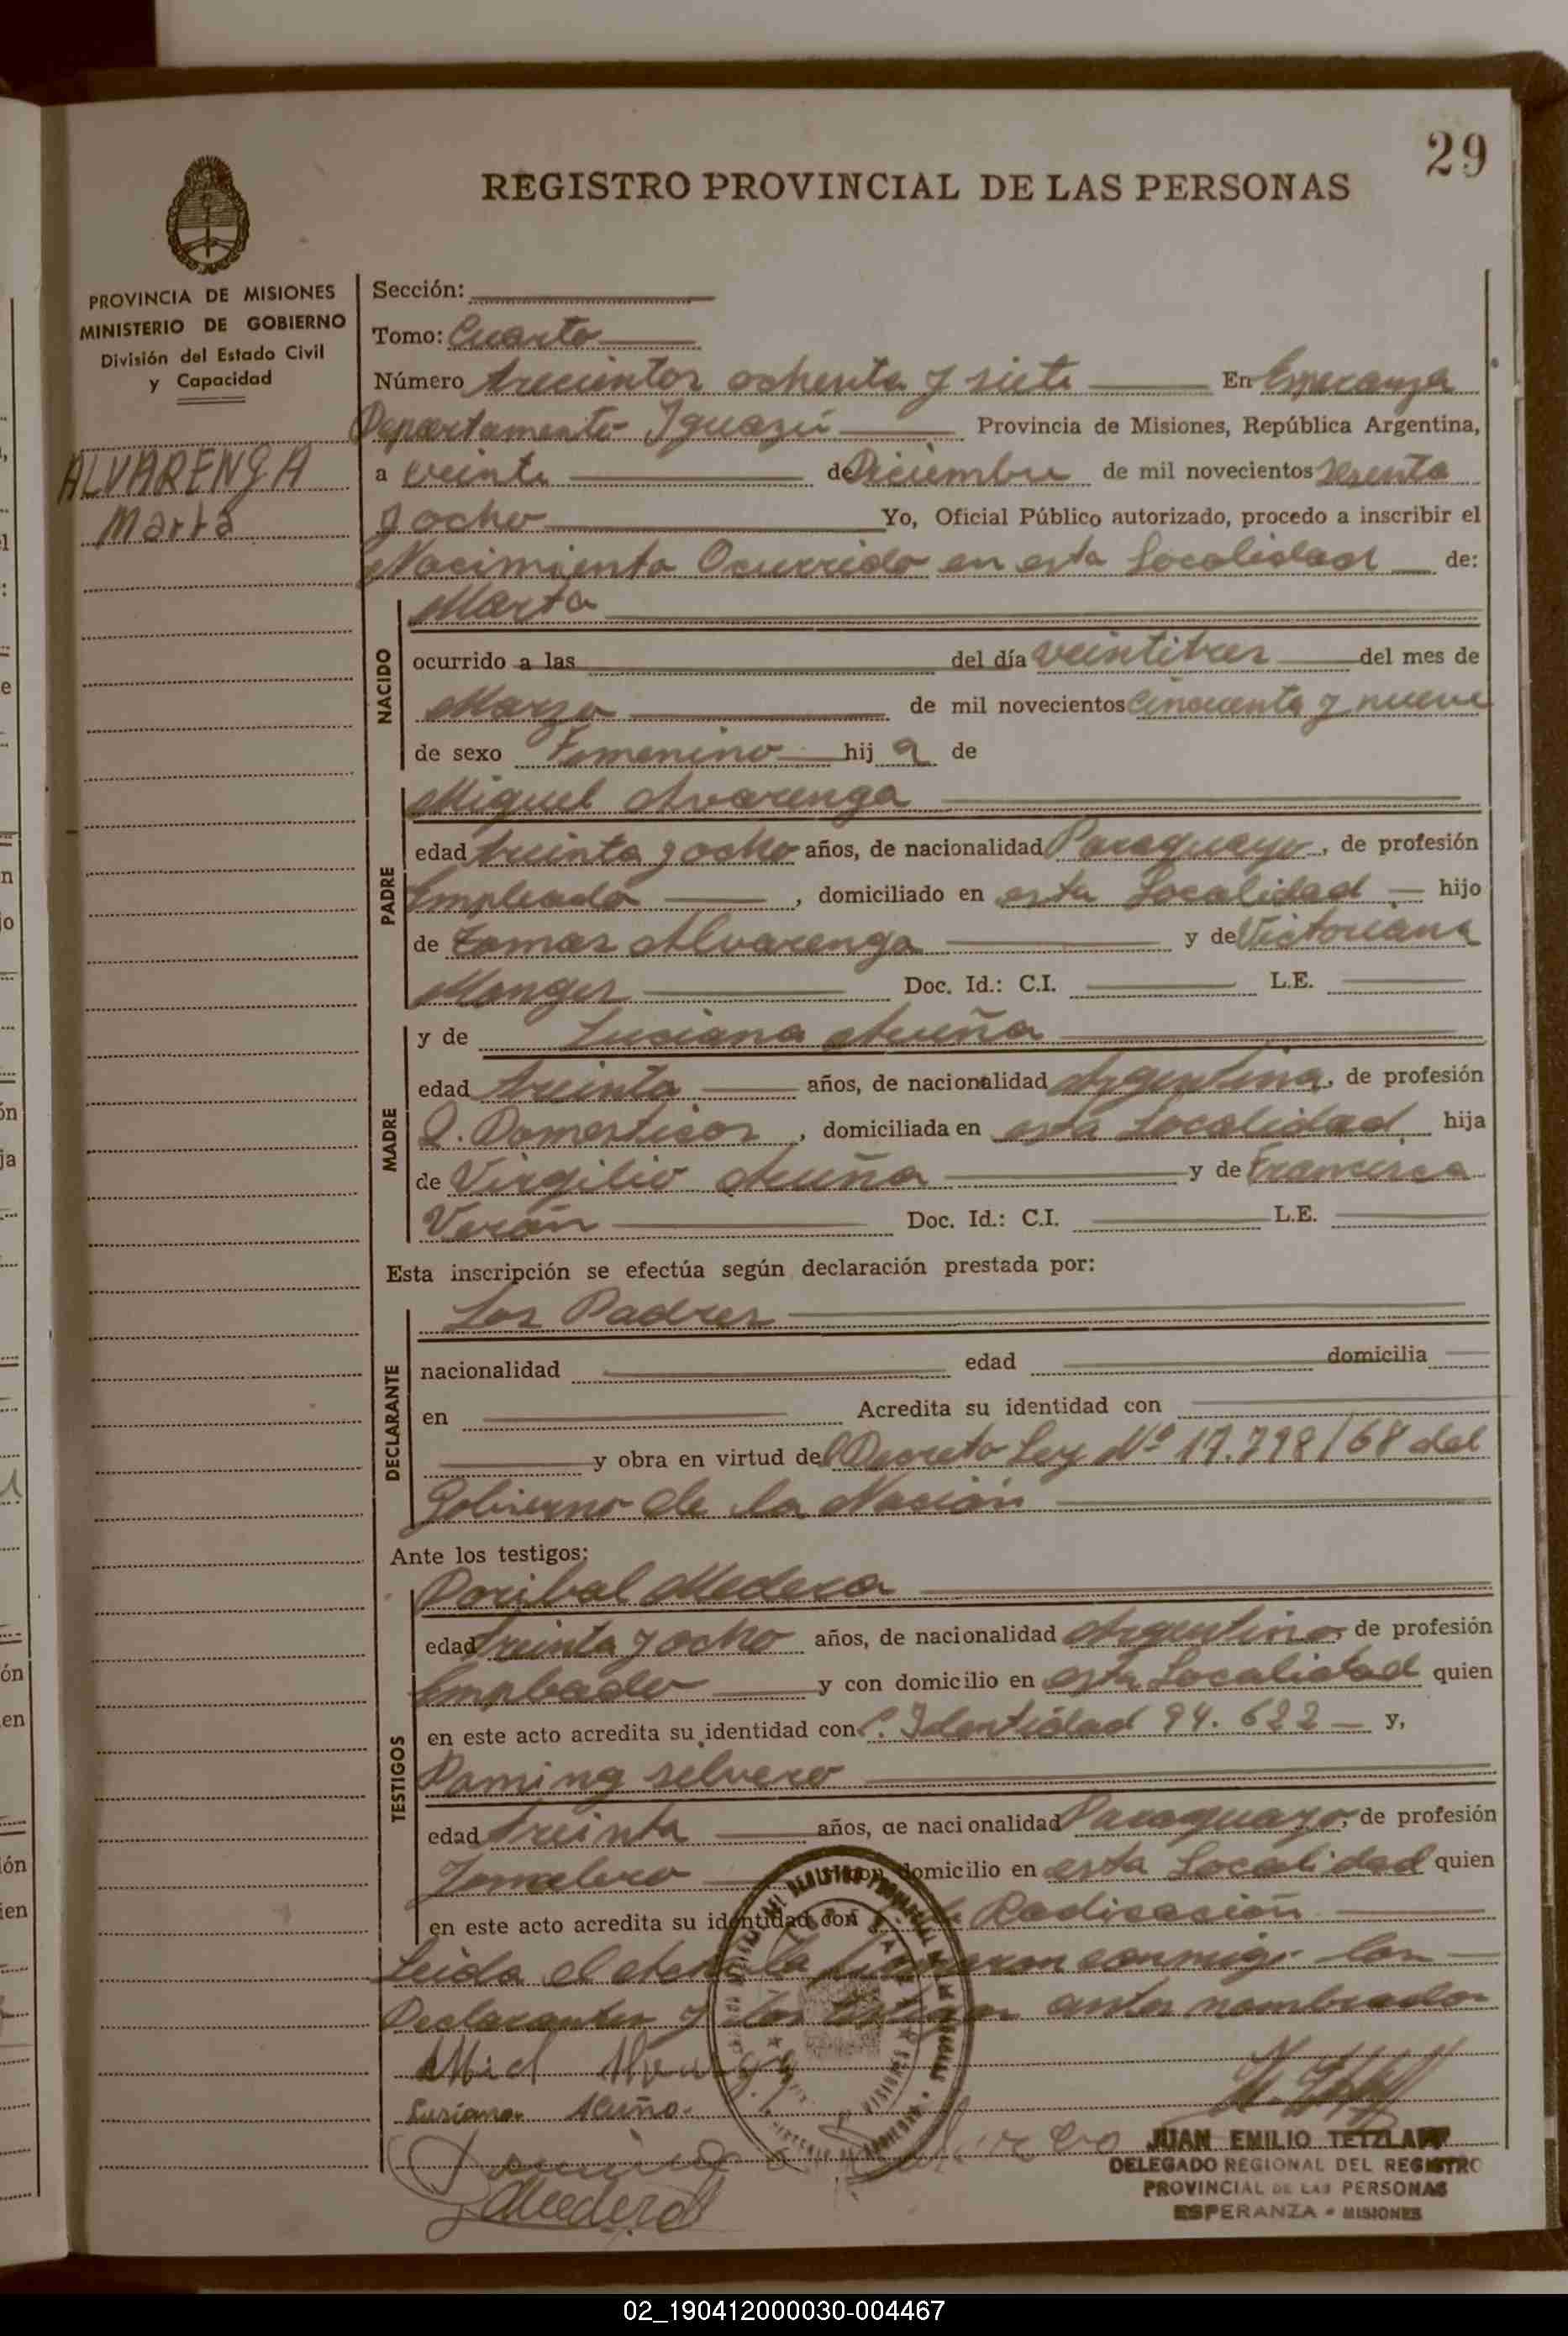 29
REGISTRO PROVINCIAL DE LAS PERSONAS
PROVINCIA DE MISIONES
MINISTERIO DE GOBIERNO
División del Estado Civil
y Capacidad
ALVARENGA
Marta
Sección:
Tomo: Cuarto
Número trecientos ochenta y siete En Esperanza
Departamento Iguazú Provincia de Misiones, República Argentina,
a veinte de Diciembre de mil novecientos sesenta
y ocho Yo, Oficial Público autorizado, procedo a inscribir el
Nacimiento Ocurrido en esta Localidad de:
NACIDO
Marta
ocurrido a las del día veintitres del mes de
Marzo de mil novecientos Cincuenta y nueve
de sexo Femenino hij a de
PADRE
Miguel Alvarenga
edad treinta y ocho años, de nacionalidad Paraguayo, de profesión
Empleado, domiciliado en esta Localidad hijo
de Tomas Alvarenga y de Victoriana
Monges Doc. Id.: C.I. L.E.
MADRE
y de Lusiana Acuña
edad treinta años, de nacionalidad Argentina, de profesión
Q. Domesticos, domiciliada en esta Localidad, hija
de Virgilio Acuña y de Francisca
Verón Doc. Id.: C.I. L.E.
Esta inscripción se efectúa según declaración prestada por:
DECLARANTE
Los Padres
nacionalidad edad domicilia
en Acredita su identidad con
y obra en virtud del Decreto Ley Nº 17.798/68 del
Gobierno de la Nación
Ante los testigos:
TESTIGOS
Doribal Medera
edad treinta y ocho años, de nacionalidad Argentino, de profesión
Empleado y con domicilio en esta Localidad quien
en este acto acredita su identidad con C. Identidad 94.622 y,
Doming selvero
edad treinta años, de nacionalidad Paraguayo, de profesión
Jornalero con domicilio en esta Localidad quien
en este acto acredita su identidad con Radicación
Leida el Acta la firmaron conmigo los
Declarantes y los testigos antes nombrados
Lusiana Acuña.
Medera
JUAN EMILIO TETZLAFF
DELEGADO REGIONAL DEL REGISTRO
PROVINCIAL DE LAS PERSONAS
ESPERANZA - MISIONES
02_190412000030-004467